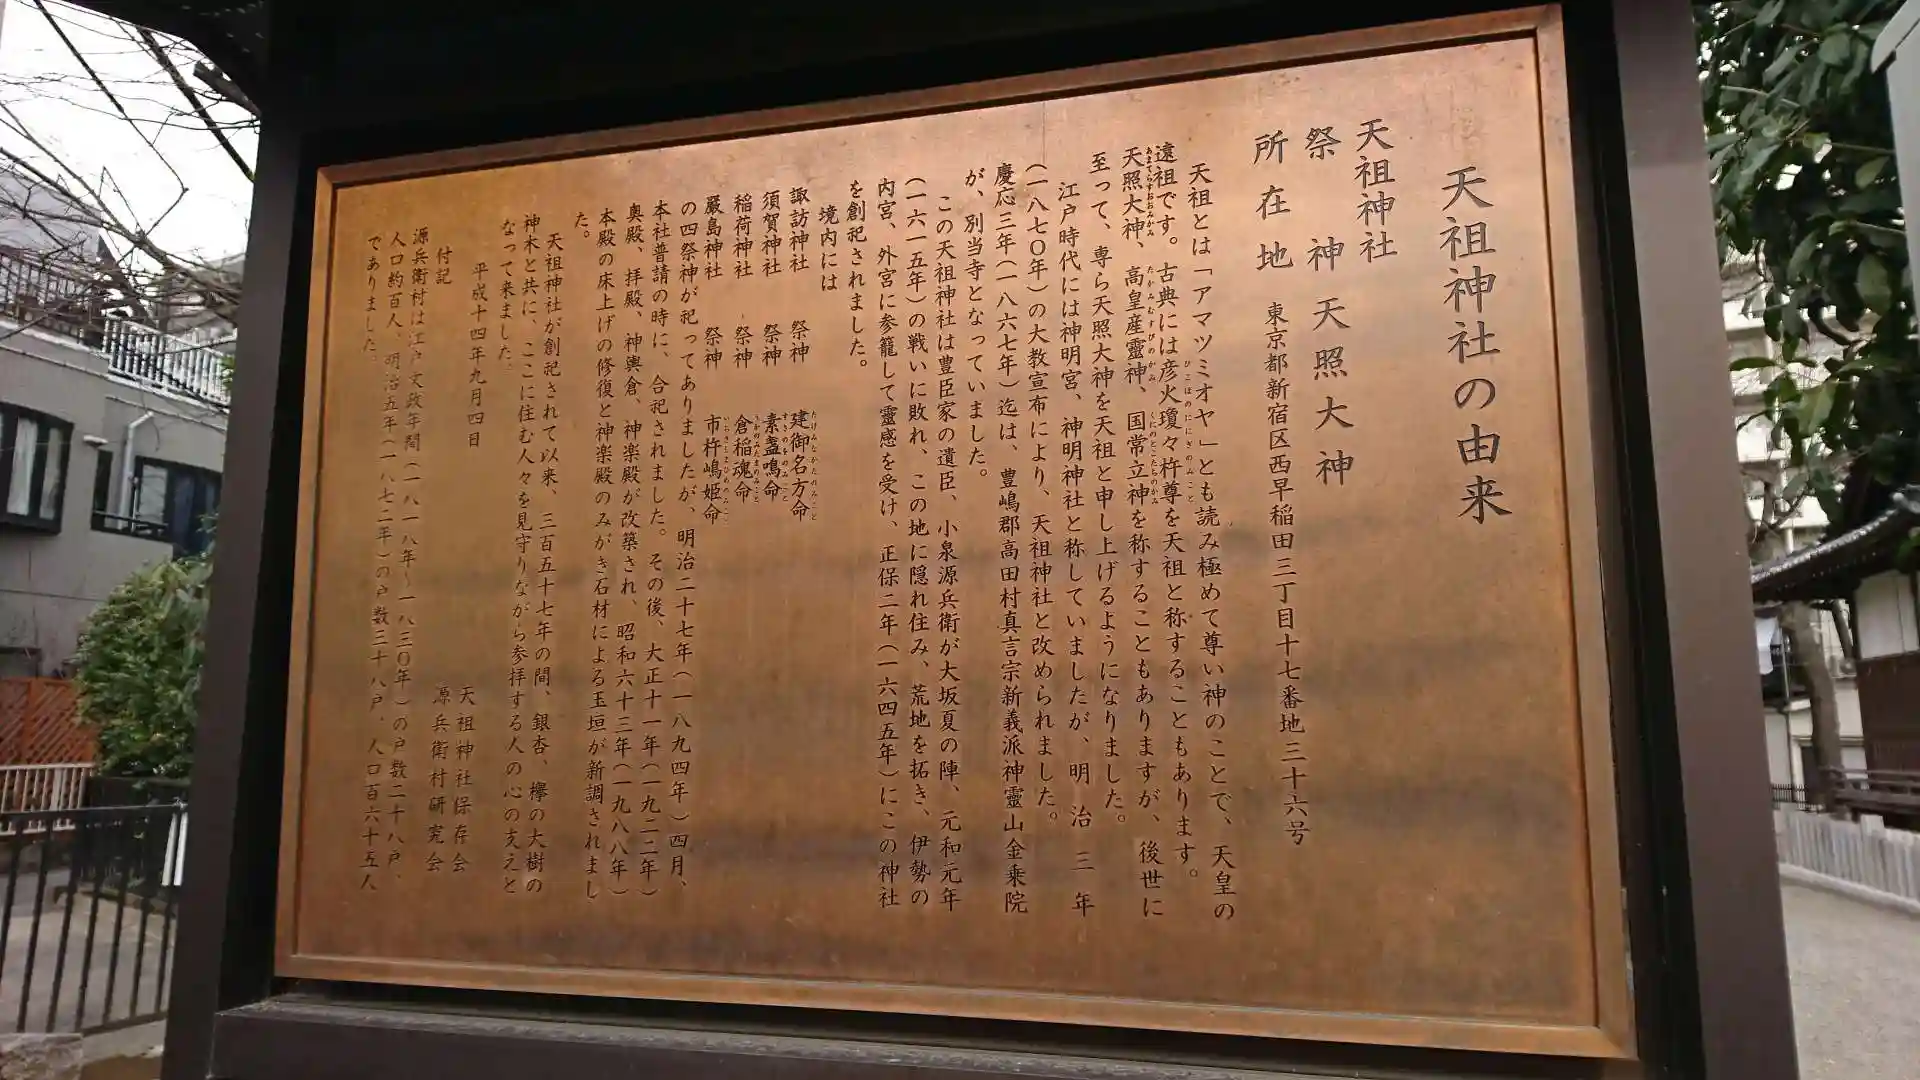 天祖神社の由来
天祖神社
祭神 天照大神
所在地 東京都新宿区西早稲田三丁目十七番地三十六号
天祖とは「アマツミオヤ」とも読み極めて尊い神のことで、天皇の
遠祖です。古典には彦火瓊々杵尊を天祖と称することもあります。
天照大神、高皇産靈神、国常立神を称することもありますが、後世に
至って、専ら天照大神を天祖と申し上げるようになりました。
江戸時代には神明宮、神明神社と称していましたが、明治三年
(一八七〇年)の大教宣布により、天祖神社と改められました。
慶応三年(一八六七年)迄は、豊嶋郡高田村真言宗新義派神靈山金乗院
が、別当寺となっていました。
この天祖神社は豊臣家の遺臣、小泉源兵衛が大坂夏の陣、元和元年
(一六一五年)の戦いに敗れ、この地に隠れ住み、荒地を拓き、伊勢の
内宮、外宮に参籠して靈感を受け、正保二年(一六四五年)にこの神社
を創祀されました。
境内には
諏訪神社 祭神 建御名方命
須賀神社 祭神 素盞鳴命
稲荷神社 祭神 倉稲魂命
厳島神社 祭神 市杵嶋姫命
の四祭神が祀ってありましたが、明治二十七年(一八九四年)四月、
本社普請の時に、合祀されました。その後、大正十一年(一九二二年)
奥殿、拝殿、神輿倉、神楽殿が改築され、昭和六十三年(一九八八年)
本殿の床上げの修復と神楽殿のみがき石材による玉垣が新調されまし
た。
天祖神社が創祀されて以来、三百五十七年の間、銀杏、欅の大樹の
神木と共に、ここに住む人々を見守りながら参拝する人の心の支えと
なって来ました。
平成十四年九月四日
天祖神社保存会
源兵衛村研究会
付記
源兵衛村は江戸文政年間(一八一八年~一八三〇年)の戸数二十八戸、
人口約百人、明治五年(一八七二年)の戸数三十八戸、人口百六十五人
でありました。